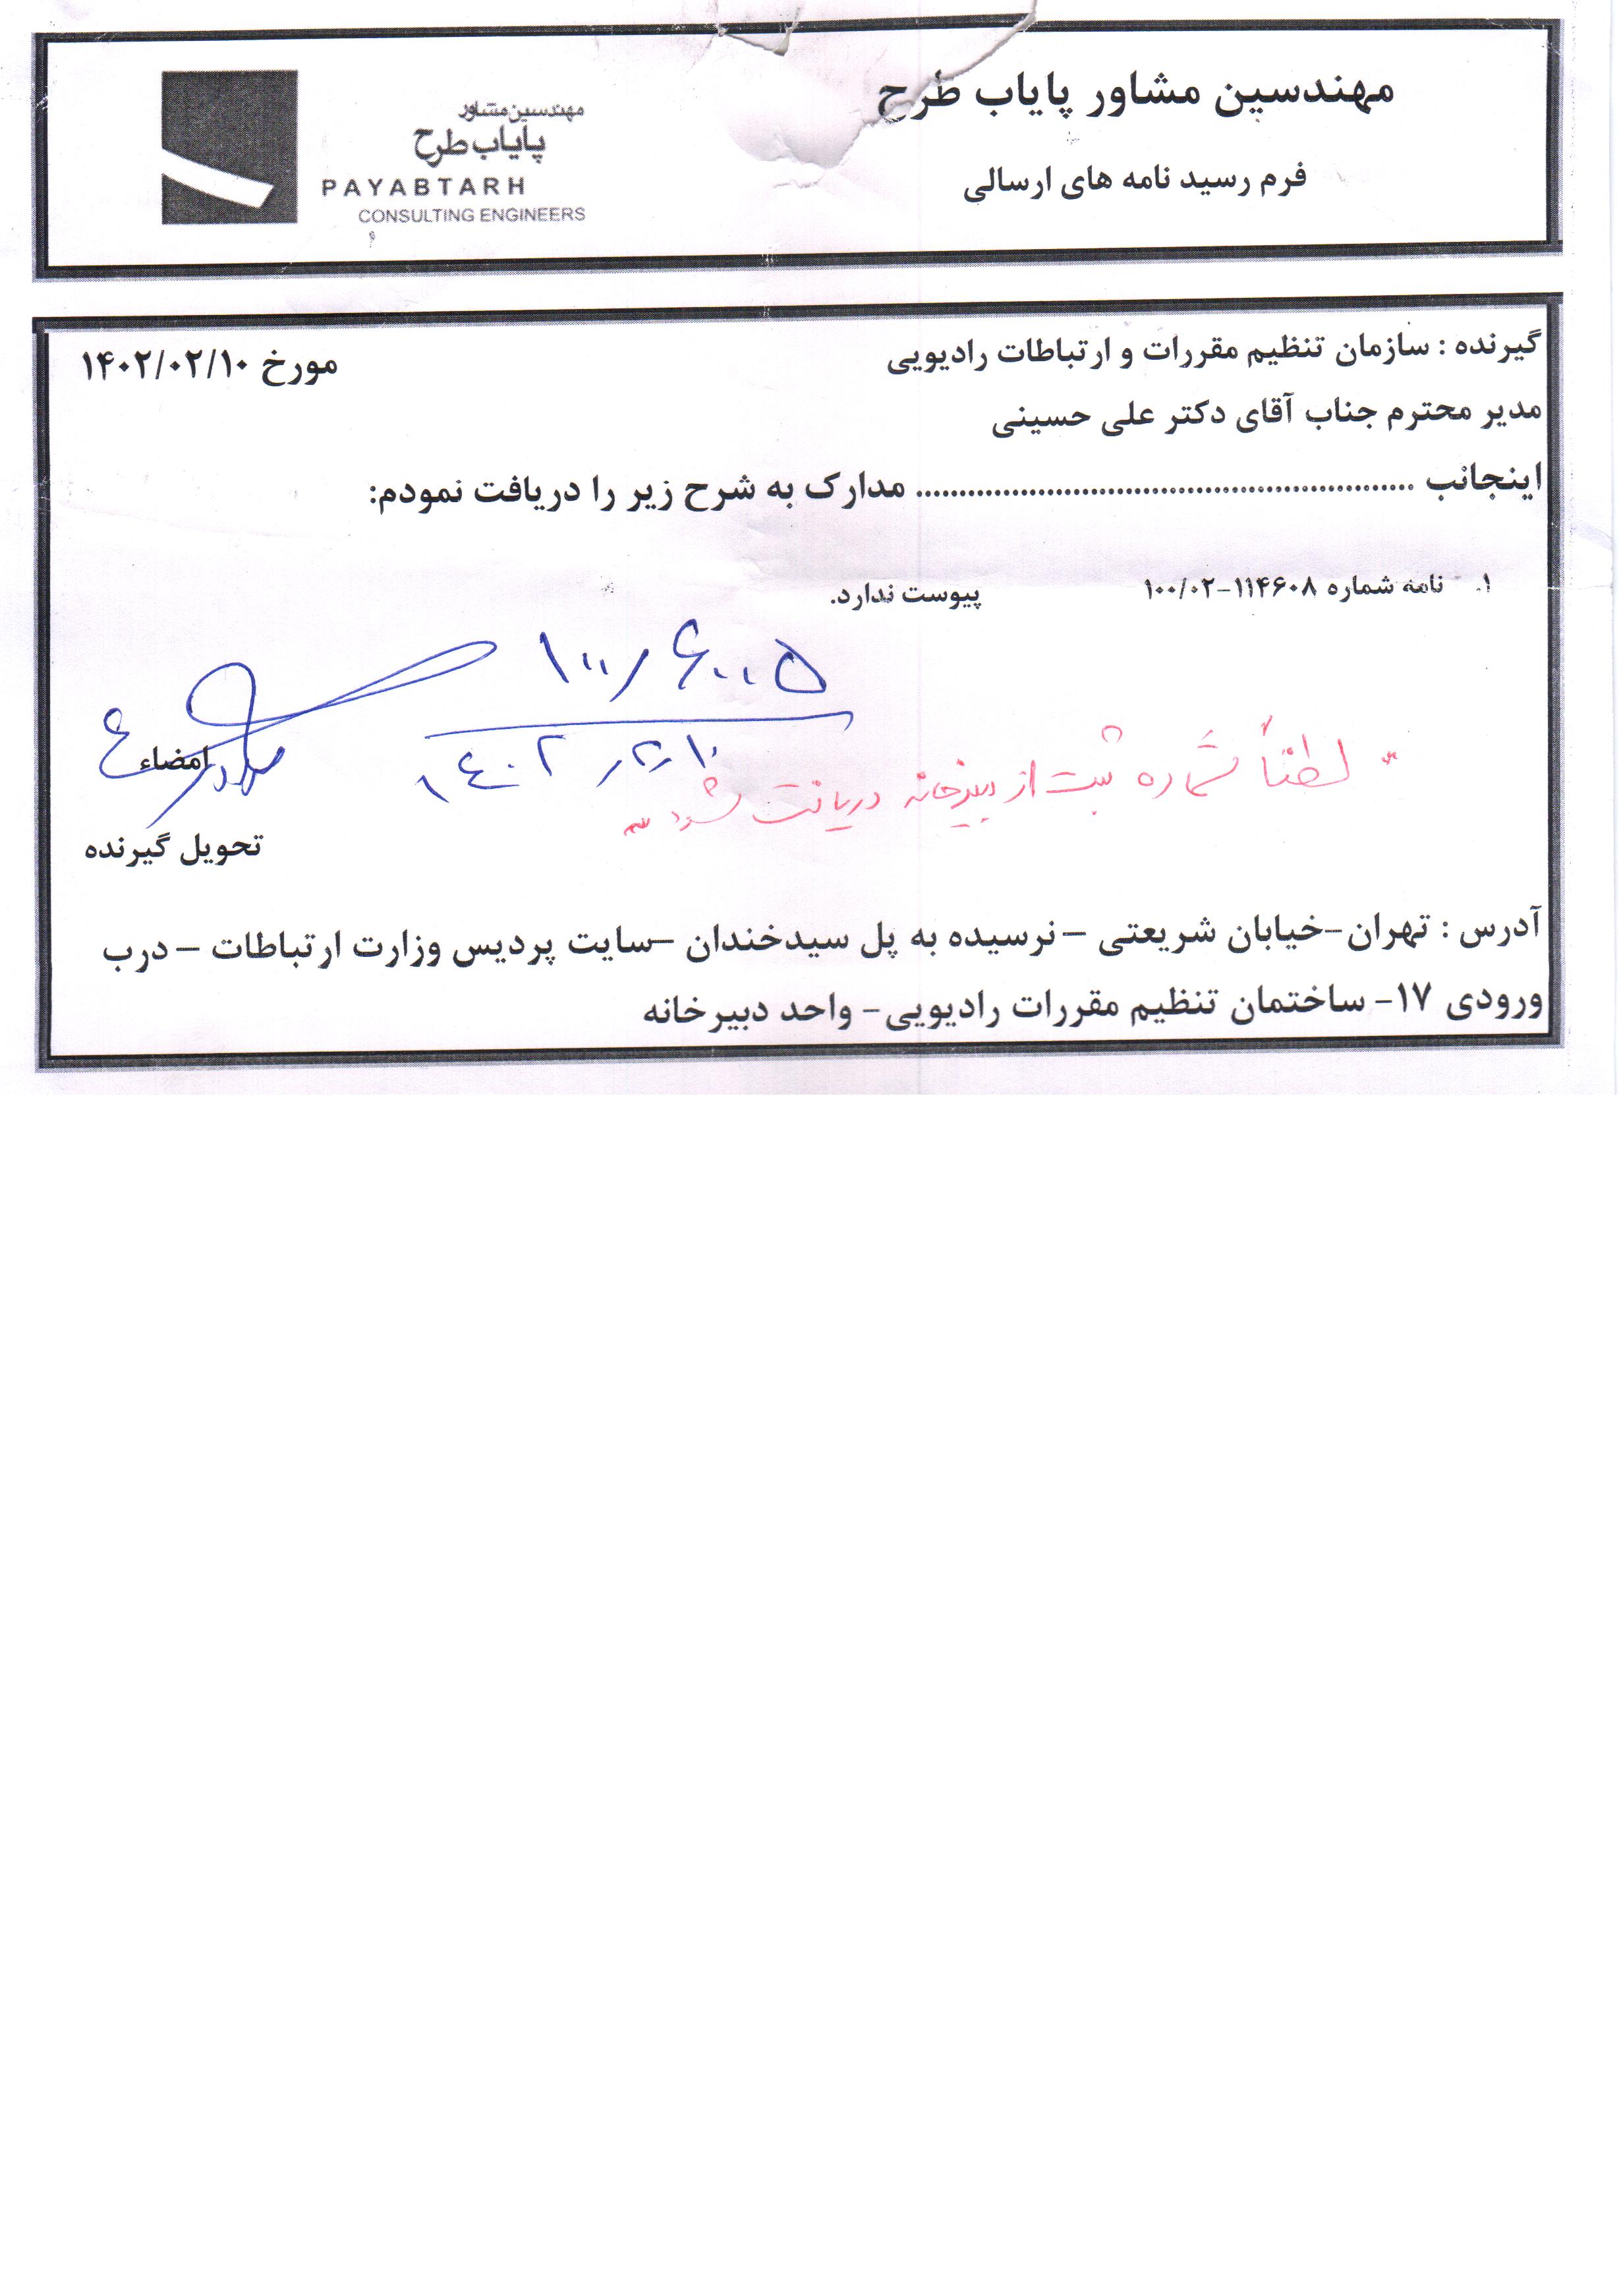 مهندسین مشاور پایاب طرح
فرم رسید نامه های ارسالی
مهندسین مشاور
پایاب طرح
PAYABTARH
CONSULTING ENGINEERS
گیرنده : سازمان تنظیم مقررات و ارتباطات رادیویی
مورخ ۱۴۰۲/۰۲/۱۰
مدیر محترم جناب آقای دکتر علی حسینی
اینجانب .......................................................... مدارک به شرح زیر را دریافت نمودم:
۱. نامه شماره ۱۱۴۶۰۸-۱۰۰/۰۲ پیوست ندارد.
۱۰۰/۶۰۰۵
۱۴۰۲/۲/۱۰
لطفاً شماره ثبت از دبیرخانه دریافت شود
امضاء
تحویل گیرنده
آدرس : تهران-خیابان شریعتی – نرسیده به پل سیدخندان –سایت پردیس وزارت ارتباطات – درب
ورودی ۱۷- ساختمان تنظیم مقررات رادیویی- واحد دبیرخانه